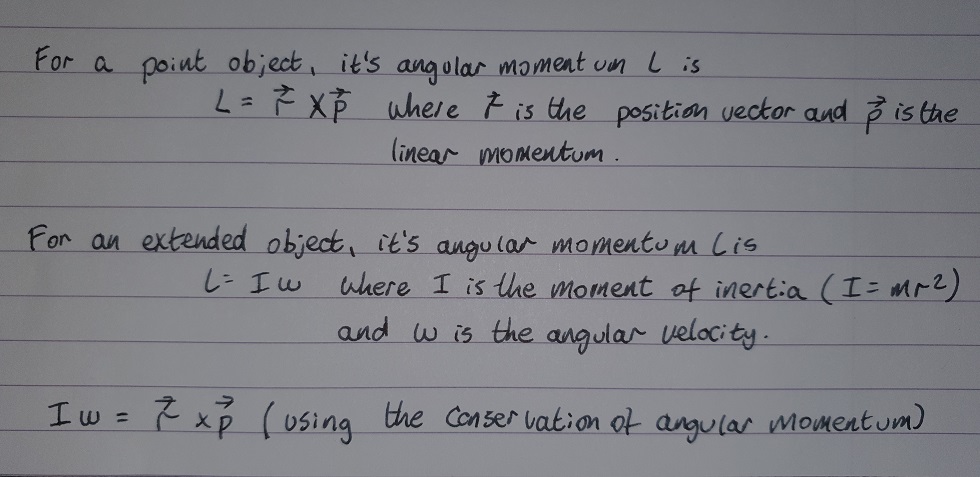 For a point object, it's angular momentum L is
L = r⃗ × p⃗ where r⃗ is the position vector and p⃗ is the
linear momentum.
For an extended object, it's angular momentum L is
L = I ω where I is the moment of inertia (I = mr²)
and ω is the angular velocity.
I ω = r⃗ × p⃗ (using the conservation of angular momentum)